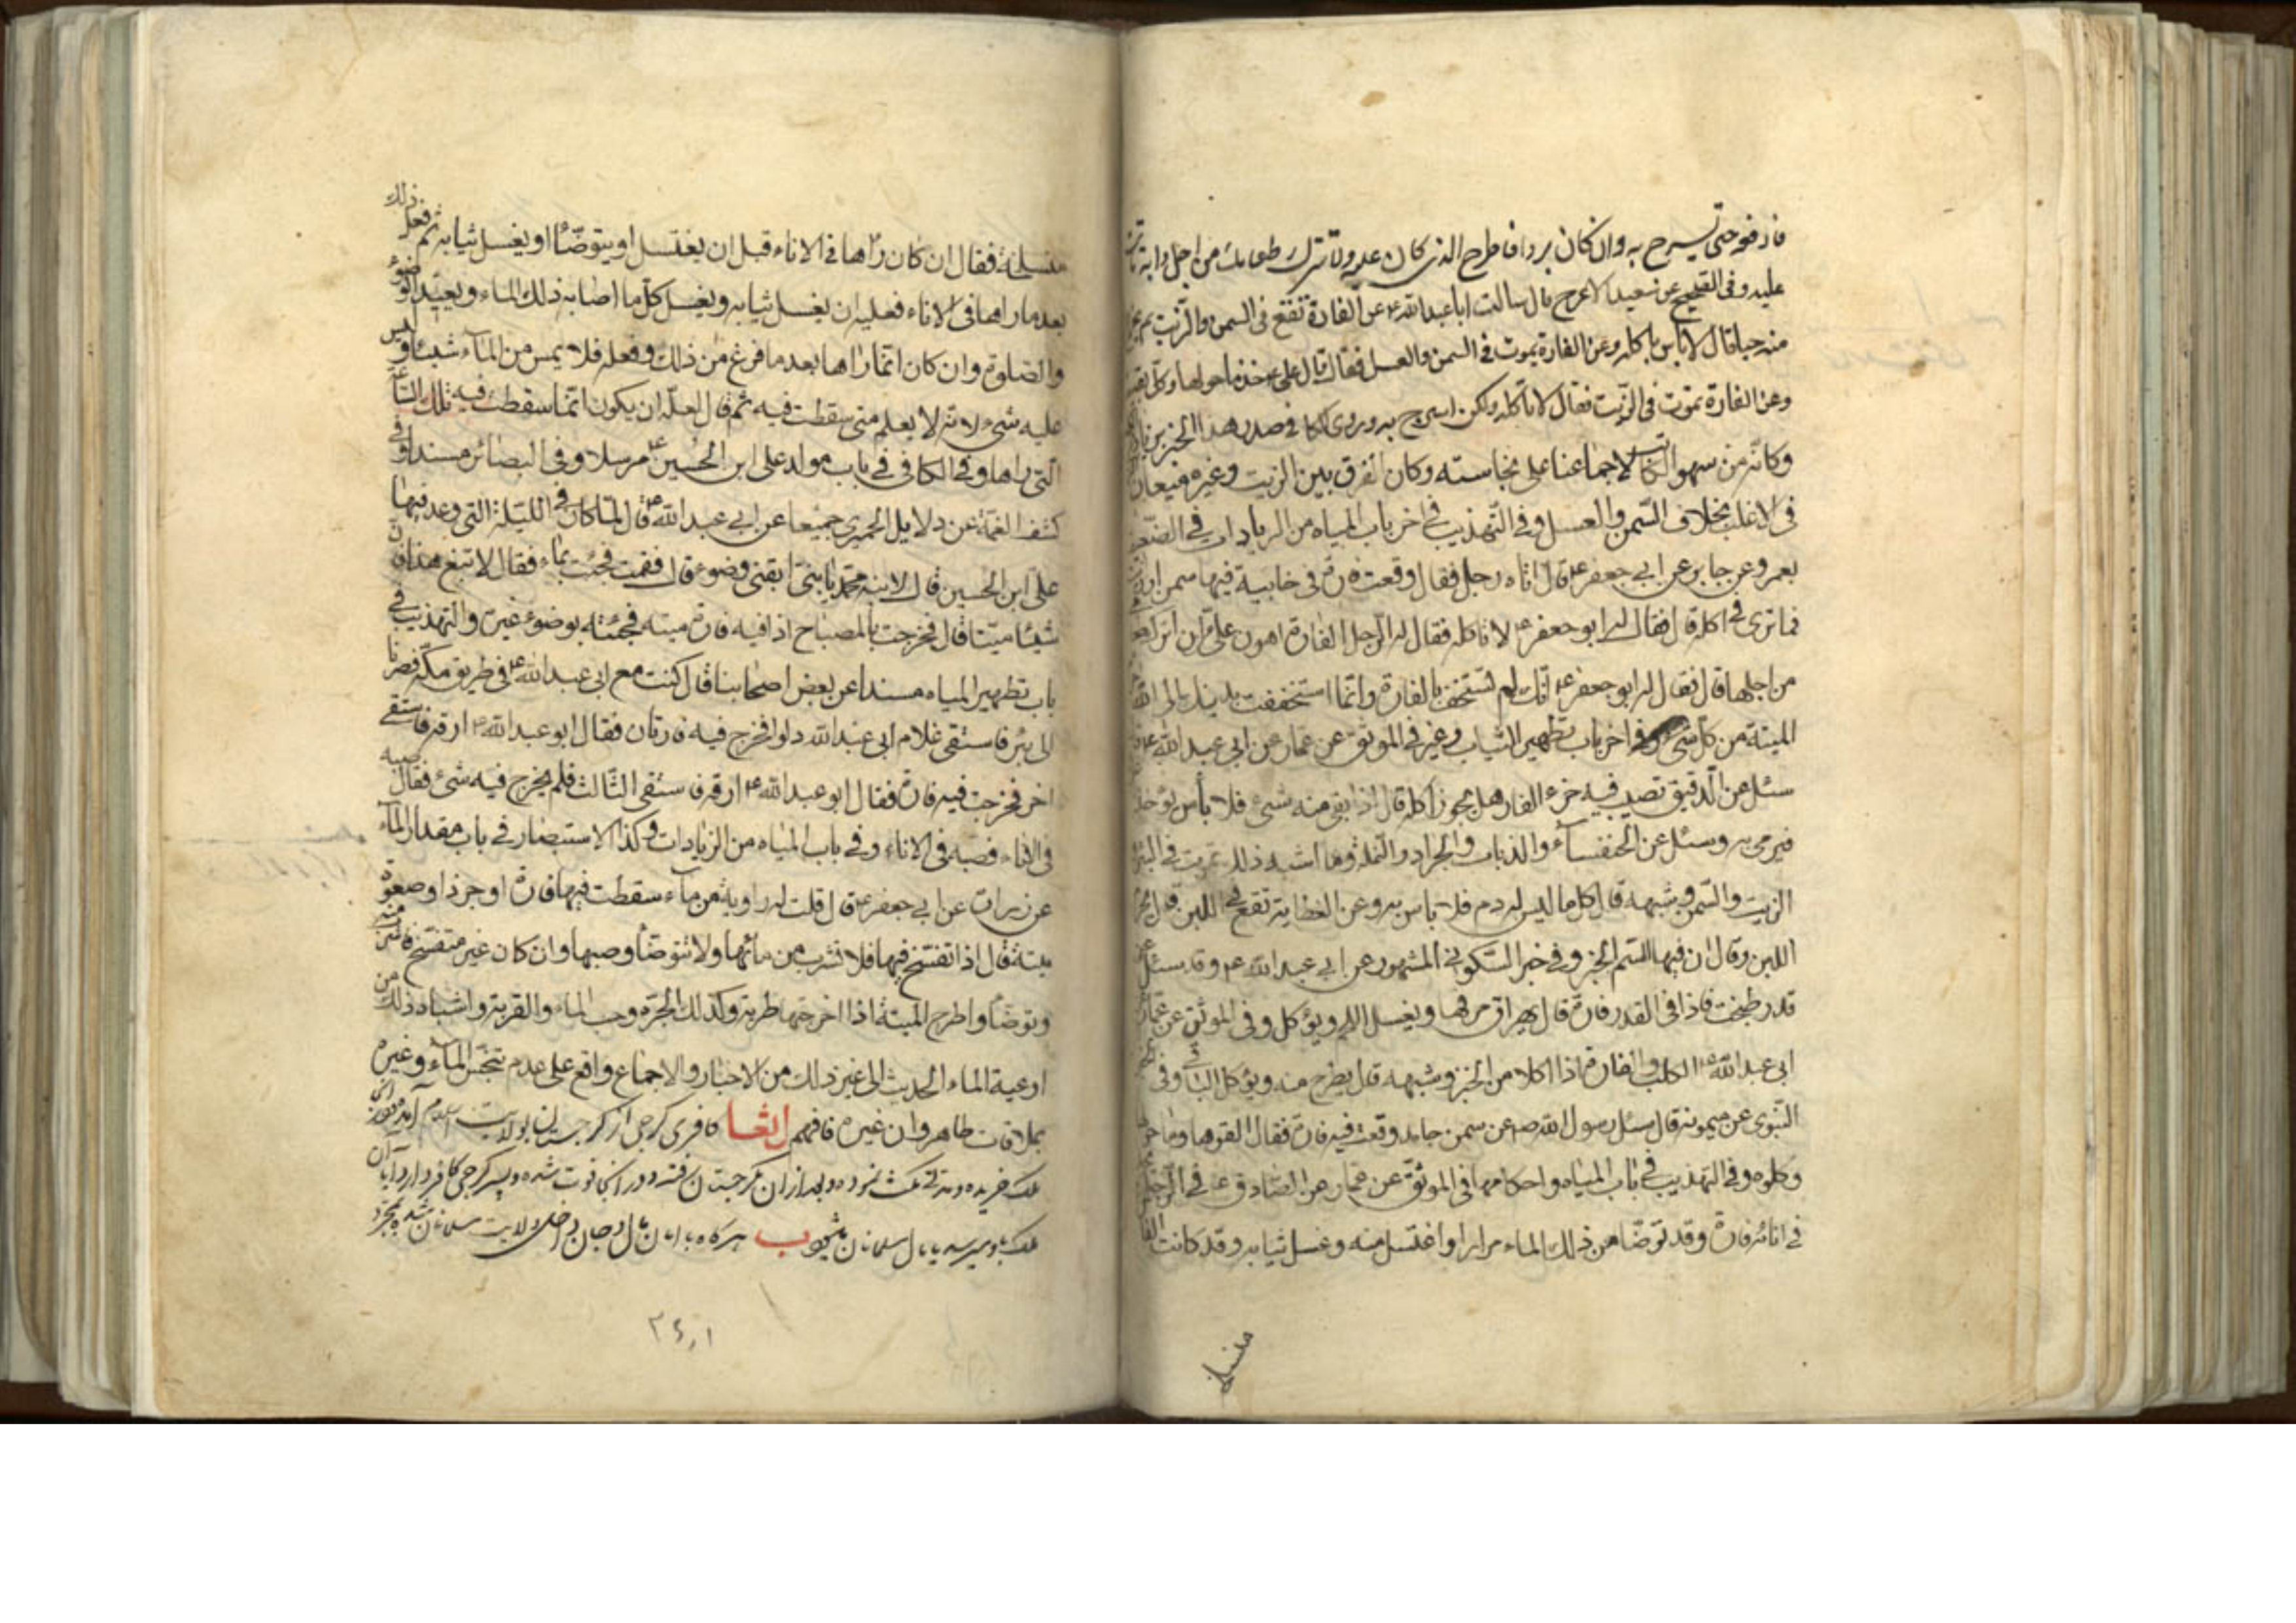 فادفعه حتى تسرج به وان كان بردا فاطرح الذى كان عليه ولا تترك طعامك من اجل دابة ماتت
عليه وفى الصحيح عن سعيد الاعرج قال سالت ابا عبد الله ع عن الفارة تقع فى السمن والزيت ثم تخرج
منه حيا قال لا باس باكله وعن الفارة تموت فى السمن والعسل فقال قال على ع خذ ما حولها وكل بقيته
وعن الفارة تموت فى الزيت فقال لا تاكله ولكن اسرج به وروى كا فى صدر هذا الخبر
وكانه من سهو الكاتب لاجماعنا على نجاسته وكان الفرق بين الزيت وغيره
فى الاغلب بخلاف السمن والعسل وفى التهذيب فى اخر باب المياه من الزيادات فى
بعمرو عن جابر عن ابى جعفر ع قال اتاه رجل فقال وقعت فارة فى خابية فيها سمن او زيت
فما ترى فى اكله قال فقال له ابو جعفر ع لا تاكله فقال له الرجل الفارة اهون على من ان اترك طعامى
من اجلها قال فقال له ابو جعفر ع انك لم تستخف بالفارة وانما استخففت بدينك ان الله
الميتة من كل شىء وفى اخر باب تطهير الثياب وغيره فى الموثق عن عمار عن ابى عبد الله ع
سئل عن الدقيق تصيب فيه خرء الفار هل يجوز اكله قال اذا بقى منه شىء فلا بأس يؤخذ
فيرمى به وسئل عن الخنفساء والذباب والجراد والنملة وما اشبه ذلك تموت فى البئر
الزيت والسمن وشبهه قال كل ما ليس له دم فلا باس به وعن العظاية تقع فى اللبن قال يحرم
اللبن وقال ان فيها السم الخبر وفى خبر السكونى المشهور عن ابى عبد الله ع وقد سئل عن
قدر طبخت فاذا فى القدر فارة قال يهراق مرقها ويغسل اللحم ويؤكل وفى الموثق عن عمار
ابى عبد الله ع الكلب والفارة اذا اكلا من الخبز وشبهه قال يطرح منه ويؤكل الباقى وفى
النبوى عن ميمونة قال سئل رسول الله ص عن سمن جامد وقعت فيه فارة فقال القوها وما حولها
وكلوه وفى التهذيب فى باب المياه واحكامها فى الموثق عن عمار عن الصادق ع فى الرجل يجد
فى انائه فارة وقد توضا من ذلك الماء مرارا واغتسل منه وغسل ثيابه وقد كانت الفارة
منسلخة
منسلخة فقال ان كان رأها فى الاناء قبل ان يغتسل او يتوضأ او يغسل ثيابه ثم فعل ذلك
بعد ما راها فى الاناء فعليه ان يغسل ثيابه ويغسل كل ما اصابه ذلك الماء ويعيد الوضوء
والصلوة وان كان انما راها بعد ما فرغ من ذلك وفعله فلا يمس من الماء شيئا وليس
عليه شىء لانه لا يعلم متى سقطت فيه ثم قال لعله ان يكون انما سقطت فيه تلك الساعة
التى راها وفى الكافى فى باب مولد على ابن الحسين ع مرسلا وفى البصائر مسندا وفى
كشف الغمة عن دلايل الحميرى جميعا عن ابى عبد الله ع قال لما كان فى الليلة التى وعد فيها
على ابن الحسين قال لابنه محمد يا بنى ابغنى وضوء قال فقمت فجئت بماء فقال لا تبغ هذا فان فيه
شيئا ميتا قال فخرجت بالمصباح اذا فيه فارة ميته فجئته بوضوء غيره والتهذيب فى
باب تطهير المياه مسندا عن بعض اصحابنا قال كنت مع ابى عبد الله ع فى طريق مكة فصرنا
الى بئر فاستقى غلام ابى عبد الله دلوا فخرج فيه فارتان فقال ابو عبد الله ع ارقه فاستقى
اخر فخرجت فيه فارة فقال ابو عبد الله ع ارقه فاستقى الثالث فلم يخرج فيه شىء فقال صبه
فى الاناء فصبه فى الاناء وفى باب المياه من الزيادات وكذا الاستبصار فى باب مقدار الماء
عن زرارة عن ابى جعفر ع قال قلت له راوية من ماء سقطت فيها فارة او جرذ او صعوة
ميتة قال اذا تفسخ فيها فلا تشرب من مائها ولا تتوضأ وصبها وان كان غير متفسخ فاشرب منه
وتوضأ واطرح الميتة اذا اخرجتها طرية وكذلك الجرة وحب الماء والقربة واشباه ذلك من
اوعية الماء الحديث الى غير ذلك من الاخبار والاجماع واقع على عدم تنجس الماء وغيره
بملاقات طاهر وان غيره فافهم ايضا كافرى كرجى از كرجستان بولايت اسلام آمده وزنى
ملك خريده ومدتى مكث نموده وبعد ازان بكرجستان رفته ودر انجا فوت شده وپسر كرجى كافر دارد آيا آن
ملك باو ميرسد يا بمال مسلمانان جواب هرگاه بامان بمال وجان داخل ولايت مسلمانان شده بمجرد
۲۶٫۱